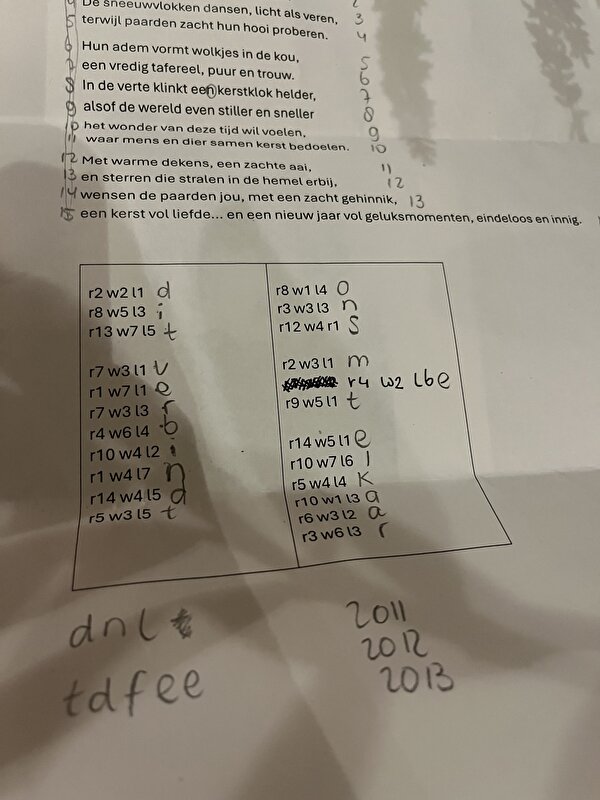 4 De sneeuwvlokken dansen, licht als veren, 3
5 terwijl paarden zacht hun hooi proberen. 4
6 Hun adem vormt wolkjes in de kou, 5
7 een vredig tafereel, puur en trouw. 6
8 In de verte klinkt een kerstklok helder, 7
9 alsof de wereld even stiller en sneller 8
10 het wonder van deze tijd wil voelen, 9
11 waar mens en dier samen kerst bedoelen. 10
12 Met warme dekens, een zachte aai, 11
13 en sterren die stralen in de hemel erbij, 12
14 wensen de paarden jou, met een zacht gehinnik, 13
15 een kerst vol liefde... en een nieuw jaar vol geluksmomenten, eindeloos en innig.
r2 w2 l1 d
r8 w5 l3 i
r13 w7 l5 t
r7 w3 l1 v
r1 w7 l1 e
r7 w3 l3 r
r4 w6 l4 b
r10 w4 l2 i
r1 w4 l7 n
r14 w4 l5 d
r5 w3 l5 t
r8 w1 l4 o
r3 w3 l3 n
r12 w4 r1 s
r2 w3 l1 m
r4 w2 l6 e
r9 w5 l1 t
r14 w5 l1 e
r10 w7 l6 l
r5 w4 l4 k
r10 w1 l3 a
r6 w3 l2 a
r3 w6 l3 r
dnl
tdfee
2011
2012
2013